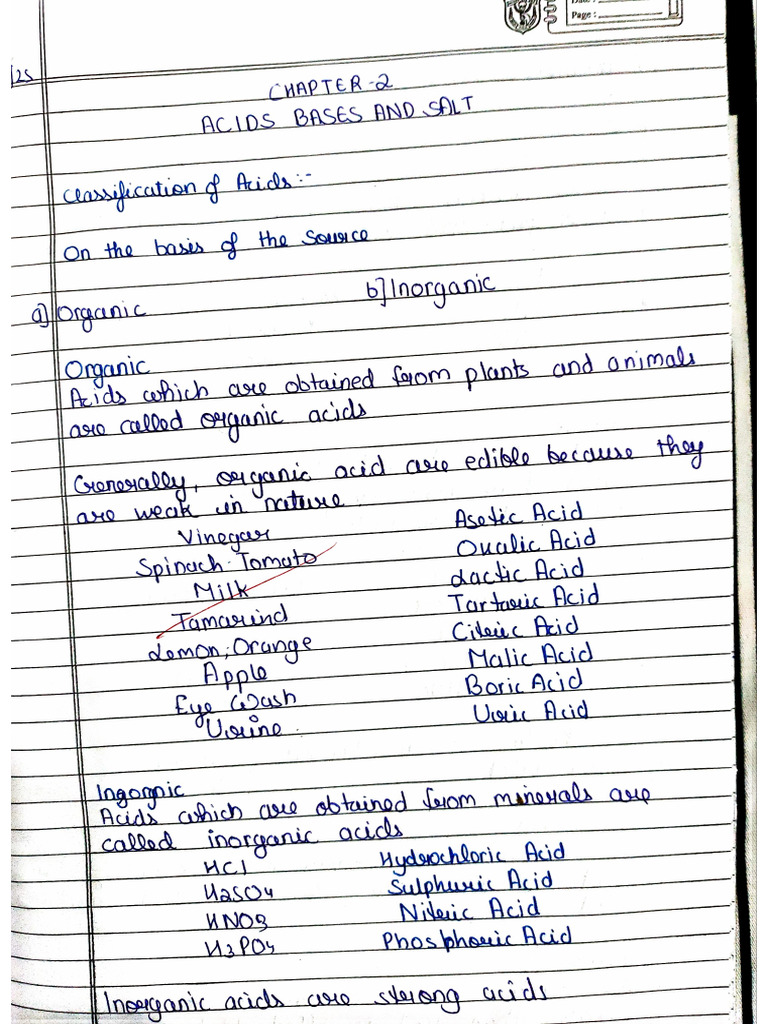 Page :
/25
CHAPTER-2
ACIDS BASES AND SALT
Classification of Acids:-
On the basis of the source
a] Organic b] Inorganic
Organic
Acids which are obtained from plants and animals
are called organic acids
Generally, organic acid are edible because they
are weak in nature
Vinegar Asetic Acid
Spinach Tomato Oxalic Acid
Milk Lactic Acid
Tamarind Tartaric Acid
Lemon, Orange Citric Acid
Apple Malic Acid
Eye Wash Boric Acid
Urine Uric Acid
Ingorgnic
Acids which are obtained from minerals are
called inorganic acids
HCl Hydrochloric Acid
H2SO4 Sulphuric Acid
HNO3 Nitric Acid
H3PO4 Phosphoric Acid
Inorganic acids are strong acids